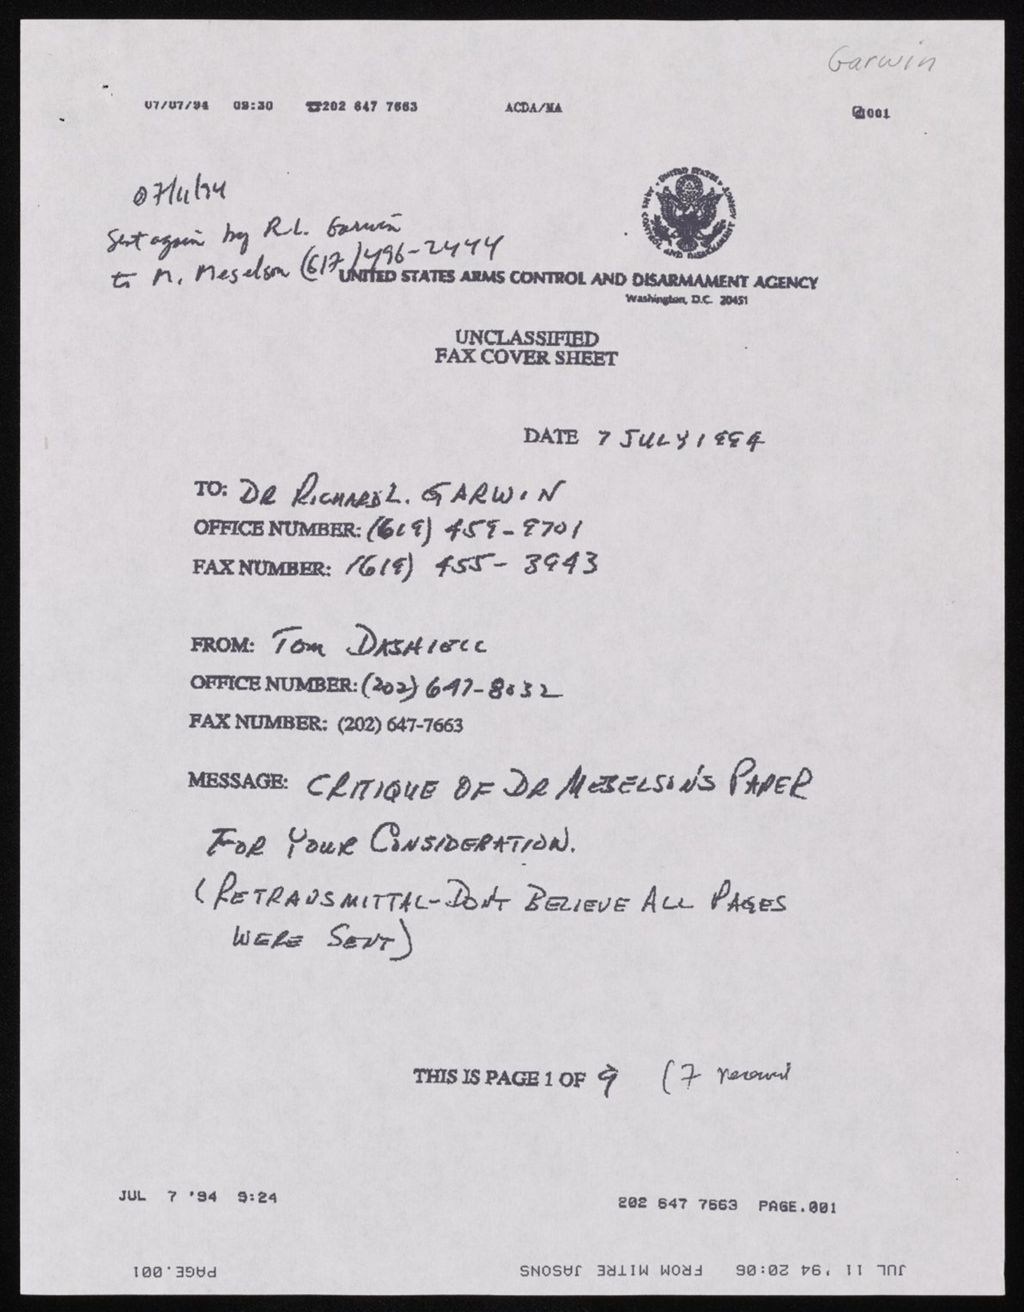 Garwin
07/07/94 09:30 ☎202 647 7663 ACDA/MA 001
07/11/94
Sent again by R.L. Garwin
to M. Meselson (617)496-2444
UNITED STATES ARMS CONTROL AND DISARMAMENT AGENCY
Washington, D.C. 20451
UNCLASSIFIED
FAX COVER SHEET
DATE 7 JULY 1994
TO: DR RICHARD L. GARWIN
OFFICE NUMBER: (619) 459-9701
FAX NUMBER: (619) 455-3943
FROM: TOM DASHIELL
OFFICE NUMBER: (202) 647-8032
FAX NUMBER: (202) 647-7663
MESSAGE: CRITIQUE OF DR MESELSONS PAPER
FOR YOUR CONSIDERATION.
(RETRANSMITTAL-DON'T BELIEVE ALL PAGES
WERE SENT)
THIS IS PAGE 1 OF 9 (7 received
JUL 7 '94 9:24 202 647 7663 PAGE.001
JUL 11 '94 20:06 FROM MITRE JASONS PAGE.001